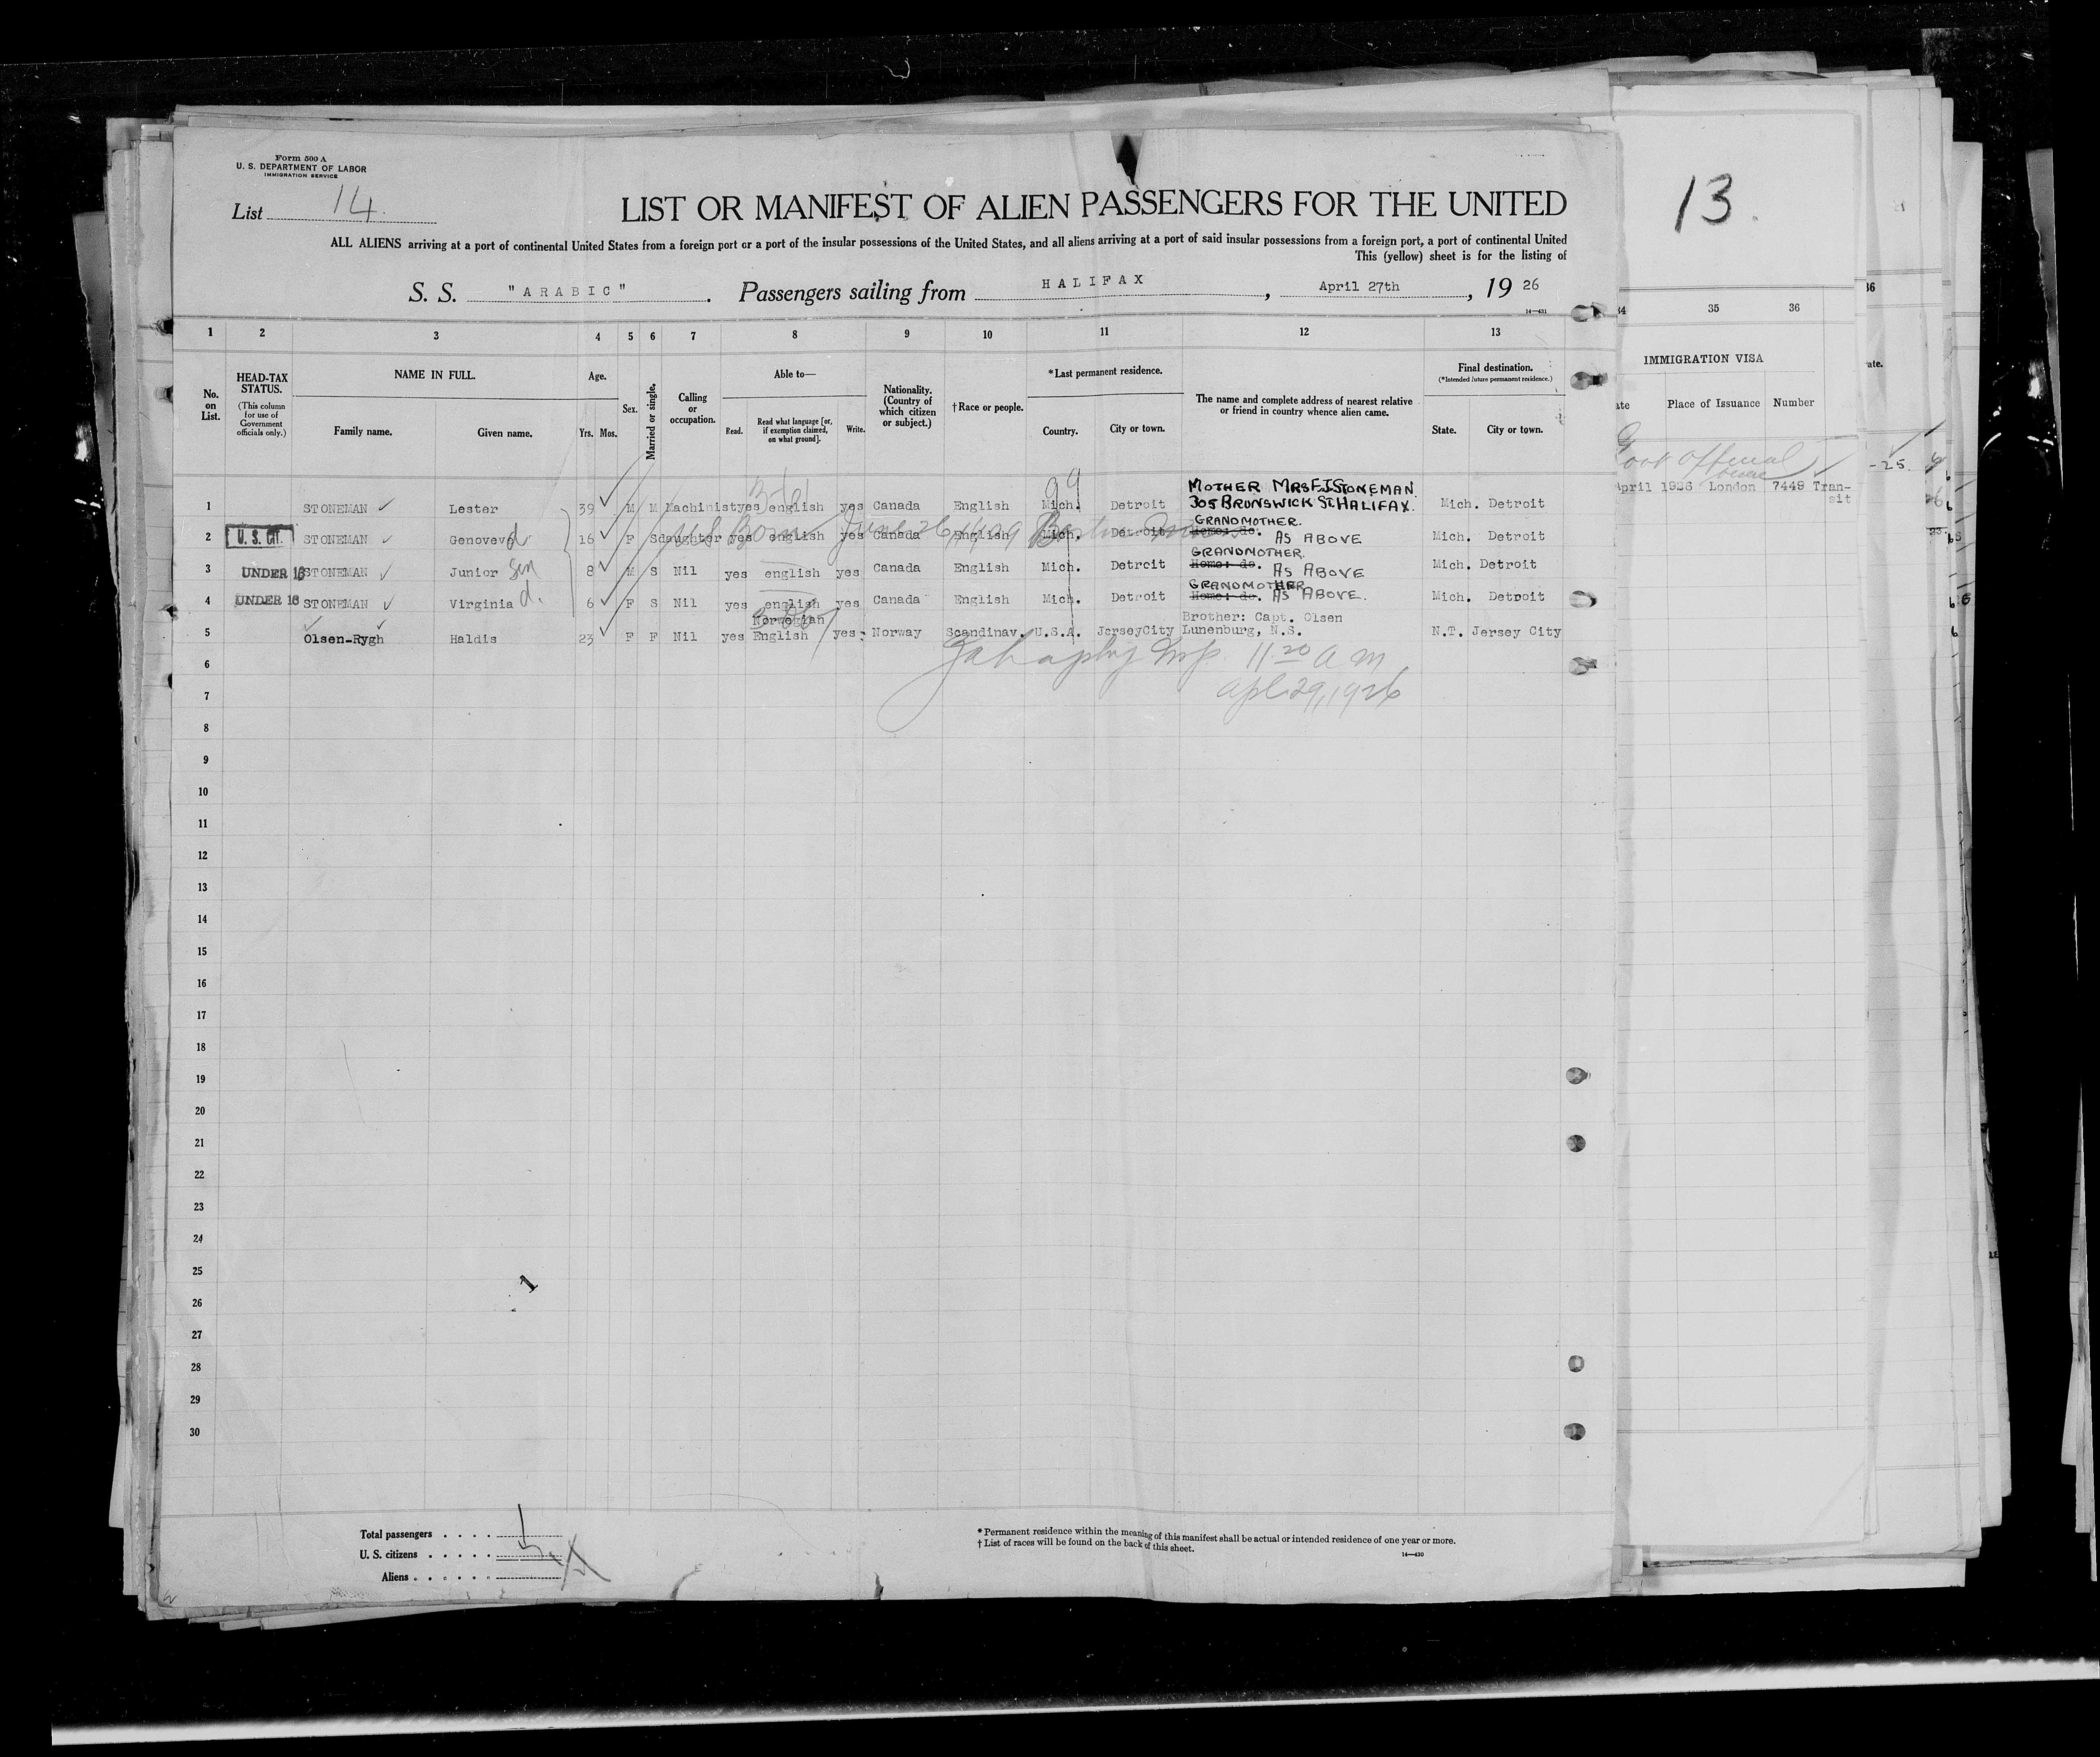 Form 500 A
U. S. DEPARTMENT OF LABOR
IMMIGRATION SERVICE
List 14.
LIST OR MANIFEST OF ALIEN PASSENGERS FOR THE UNITED
ALL ALIENS arriving at a port of continental United States from a foreign port or a port of the insular possessions of the United States, and all aliens arriving at a port of said insular possessions from a foreign port, a port of continental United
This (yellow) sheet is for the listing of
S. S. "ARABIC". Passengers sailing from HALIFAX, April 27th, 1926
14—431
1 2 3 4 5 6 7 8 9 10 11 12 13
No. on List.
HEAD-TAX STATUS. (This column for use of Government officials only.)
NAME IN FULL.
Family name. Given name.
Age. Yrs. Mos.
Sex.
Married or single.
Calling or occupation.
Able to—
Read. Read what language [or, if exemption claimed, on what ground]. Write.
Nationality. (Country of which citizen or subject.)
†Race or people.
*Last permanent residence.
Country. City or town.
The name and complete address of nearest relative or friend in country whence alien came.
Final destination. (*Intended future permanent residence.)
State. City or town.
99
1 STONEMAN Lester 39 M M Machinist yes english yes Canada English Mich. Detroit MOTHER MRS F.J STONEMAN. 305 BRUNSWICK ST. HALIFAX. Mich. Detroit
US Born June 26
2 U. S. CIT. STONEMAN Genoveva d 16 F S daughter yes english yes Canada English Mich. Detroit GRANDMOTHER. Home: do. AS ABOVE Mich. Detroit
3 UNDER 16 STONEMAN Junior Son 8 M S Nil yes english yes Canada English Mich. Detroit GRANDMOTHER. Home: do. AS ABOVE Mich. Detroit
4 UNDER 16 STONEMAN Virginia d. 6 F S Nil yes english yes Canada English Mich. Detroit GRANDMOTHER Home: do. AS ABOVE. Mich. Detroit
5 Olsen-Rygh Haldis 23 F F Nil yes Norwegian English yes Norway Scandinav. U.S.A. JerseyCity Brother: Capt. Olsen Lunenburg, N.S. N.T. Jersey City
6 11 20 a m
7 Apl. 29, 1926
8
9
10
11
12
13
14
15
16
17
18
19
20
21
22
23
24
25
26
27
28
29
30
Total passengers
U. S. citizens
Aliens
* Permanent residence within the meaning of this manifest shall be actual or intended residence of one year or more.
† List of races will be found on the back of this sheet.
14—430
13.
35 36
IMMIGRATION VISA
Place of Issuance Number
April 1926 London 7449 Transit
-25.